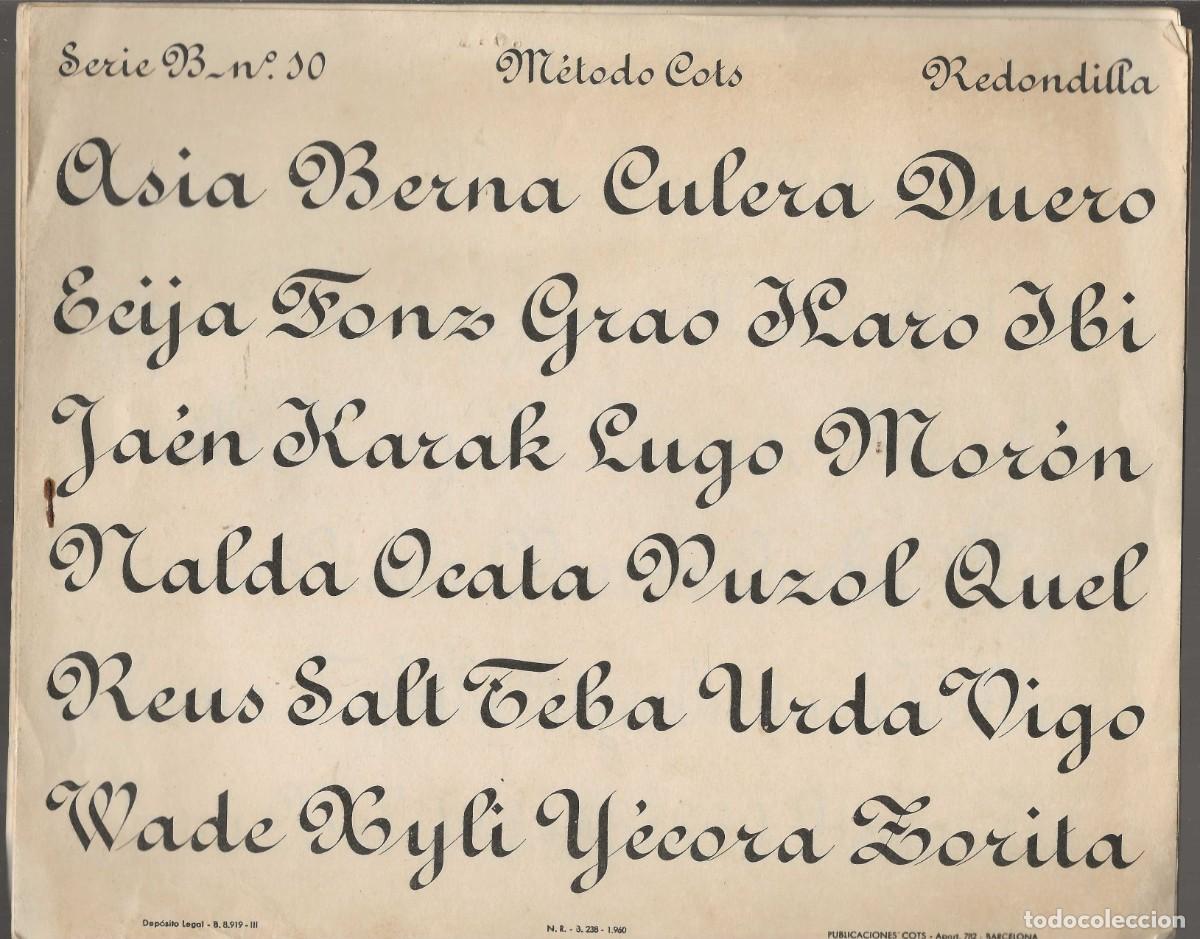 Serie B-nº. 10 Método Cots Redondilla
Asia Berna Culera Duero
Ecija Fonz Grao Haro Ibi
Jaén Karak Lugo Morón
Nalda Ocata Puzol Quel
Reus Salt Teba Urda Vigo
Wade Xyli Yécora Zorita
Depósito Legal - B. 8.919 - III N. R. - B. 238 - 1.960 PUBLICACIONES COTS - Apart. 782 - BARCELONA
todocoleccion